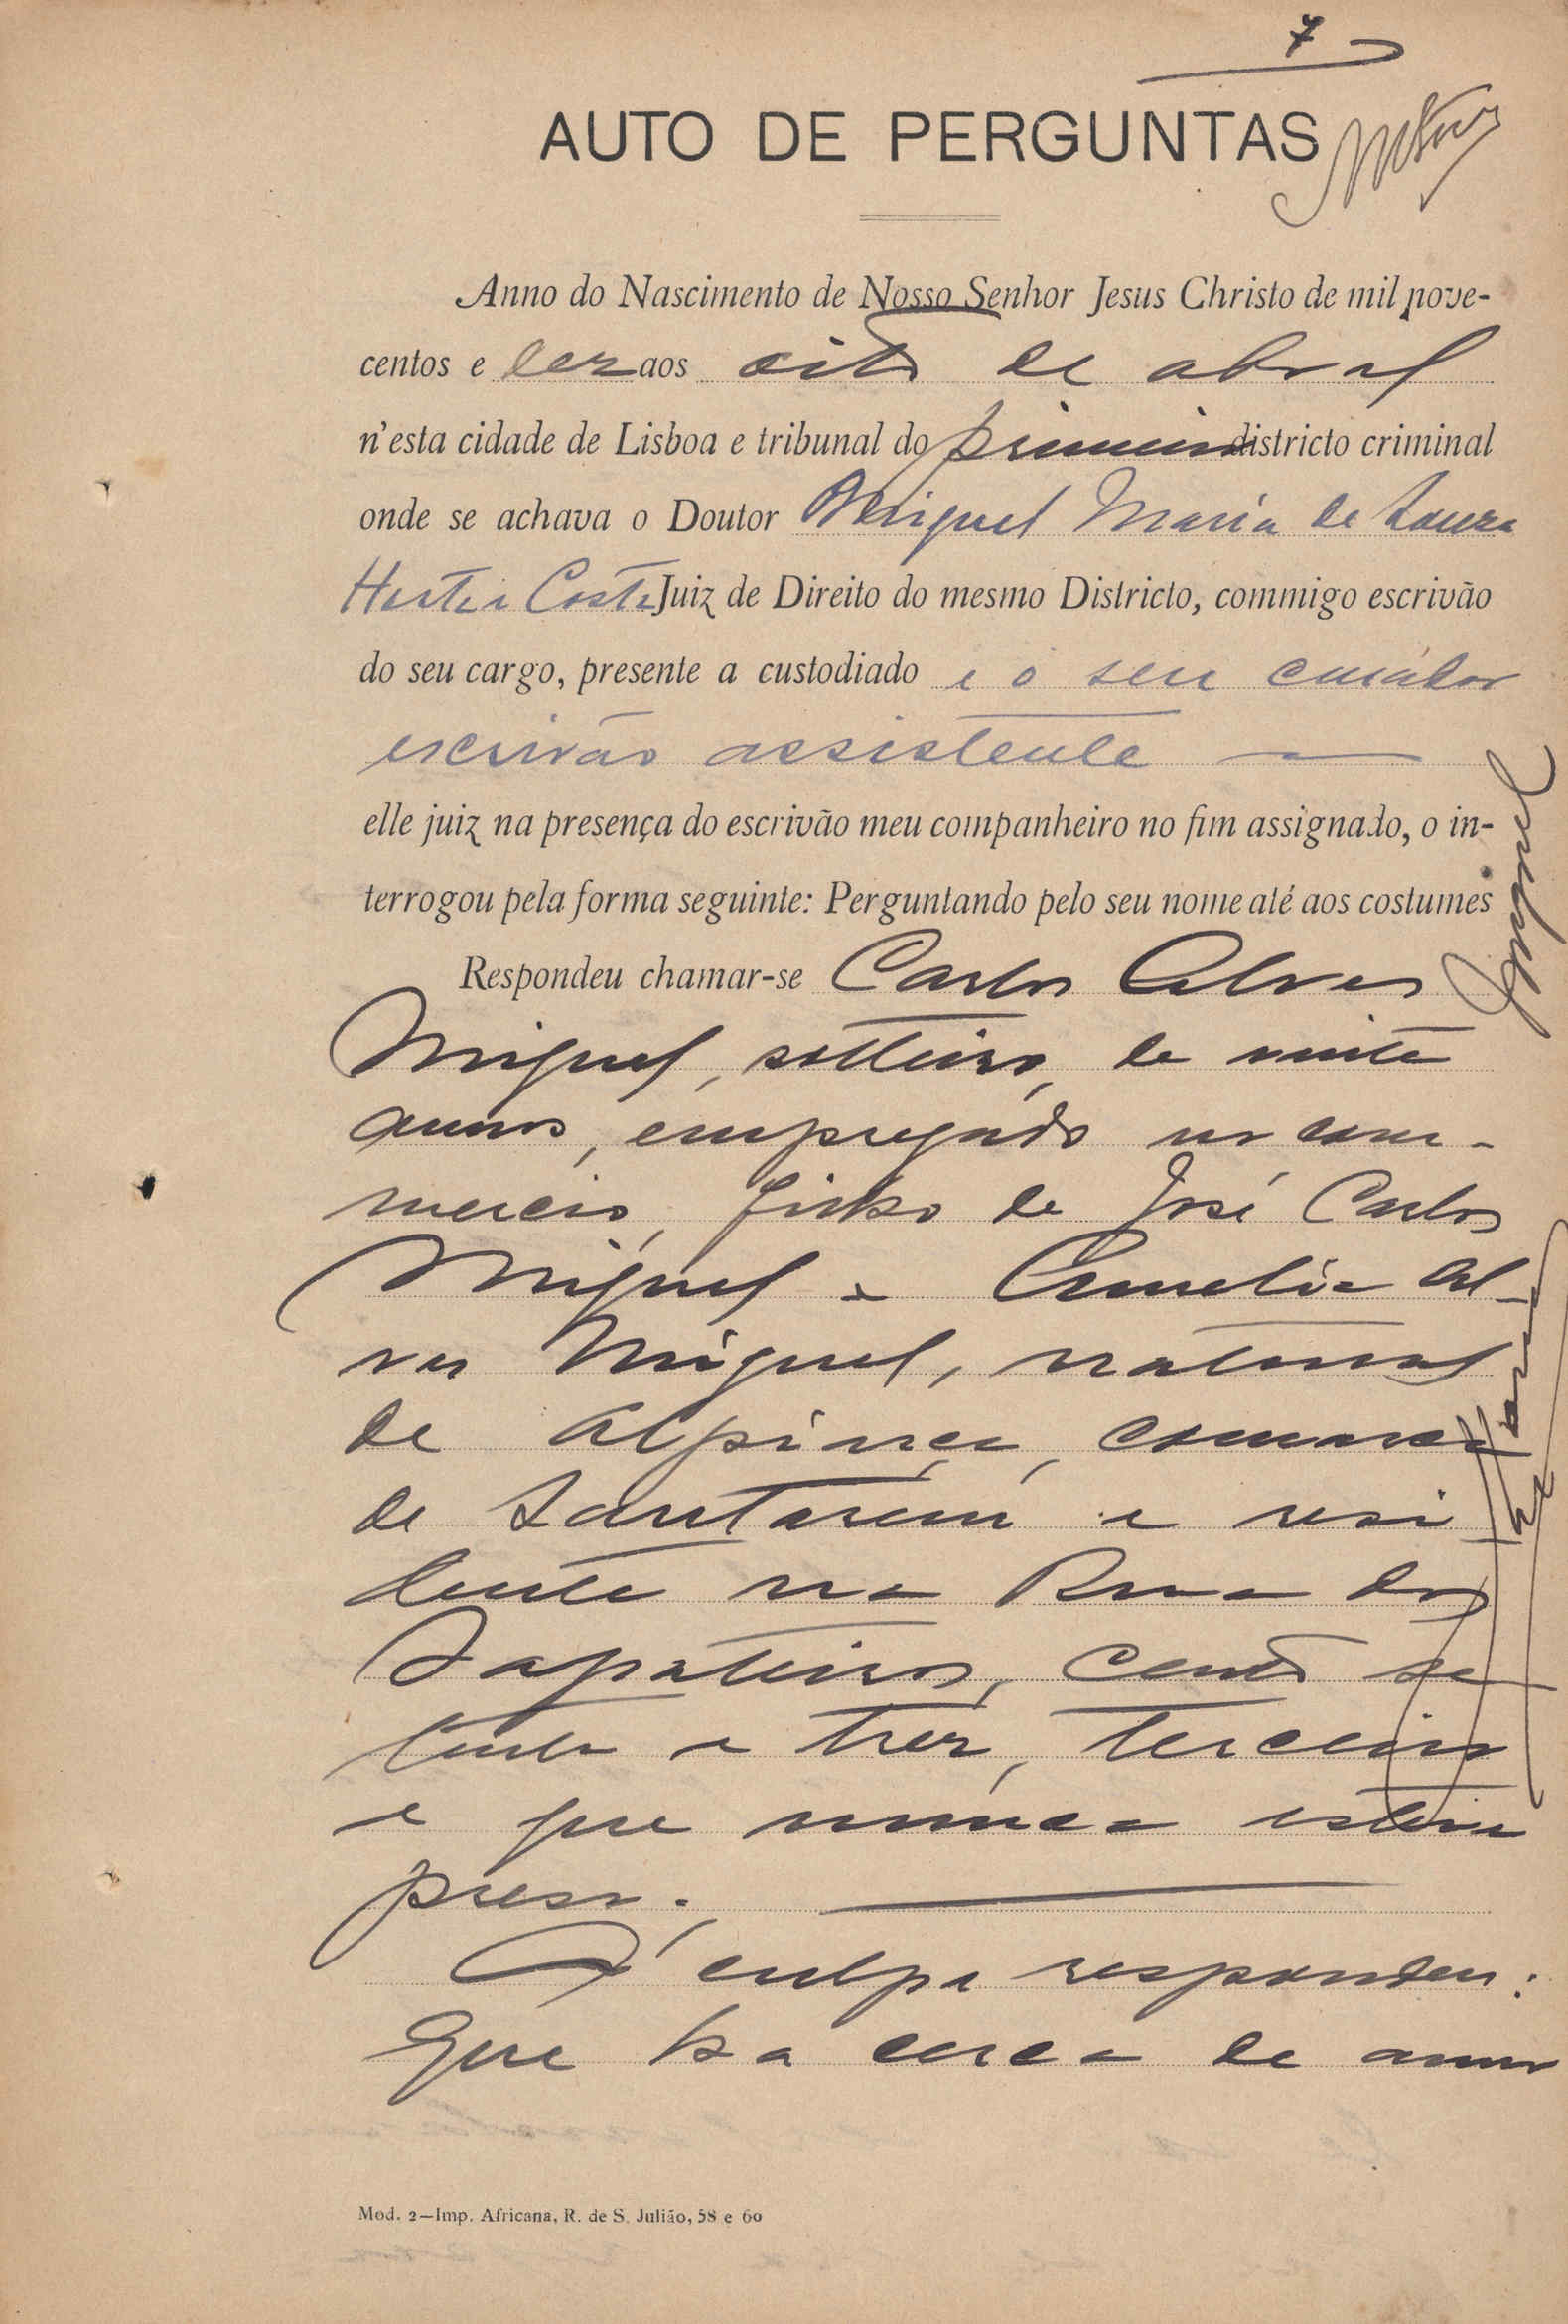 7
AUTO DE PERGUNTAS
Anno do Nascimento de Nosso Senhor Jesus Christo de mil nove-
centos e dez aos oito de abril
n'esta cidade de Lisboa e tribunal do primeiro districto criminal
onde se achava o Doutor Miguel Maria de Souza
Horta e Costa Juiz de Direito do mesmo Districto, commigo escrivão
do seu cargo, presente a custodiado e o seu curador
escrivão assistente
elle juiz na presença do escrivão meu companheiro no fim assignado, o in-
terrogou pela forma seguinte: Perguntando pelo seu nome até aos costumes
Respondeu chamar-se Carlos Alves
Miguel, solteiro, de vinte
annos, empregado no com-
mercio, filho de José Carlos
Miguel e Amelia Al-
ves Miguel, natural
de Alpiarça, comarca
de Santarem e resi
dente na Rua dos
Sapateiros, cento se
tenta e trez, terceiro
e que nunca esteve
preso.
Á culpa respondeu:
Que ha cerca de anno
Miguel
Mod. 2—Imp. Africana, R. de S. Julião, 58 e 60